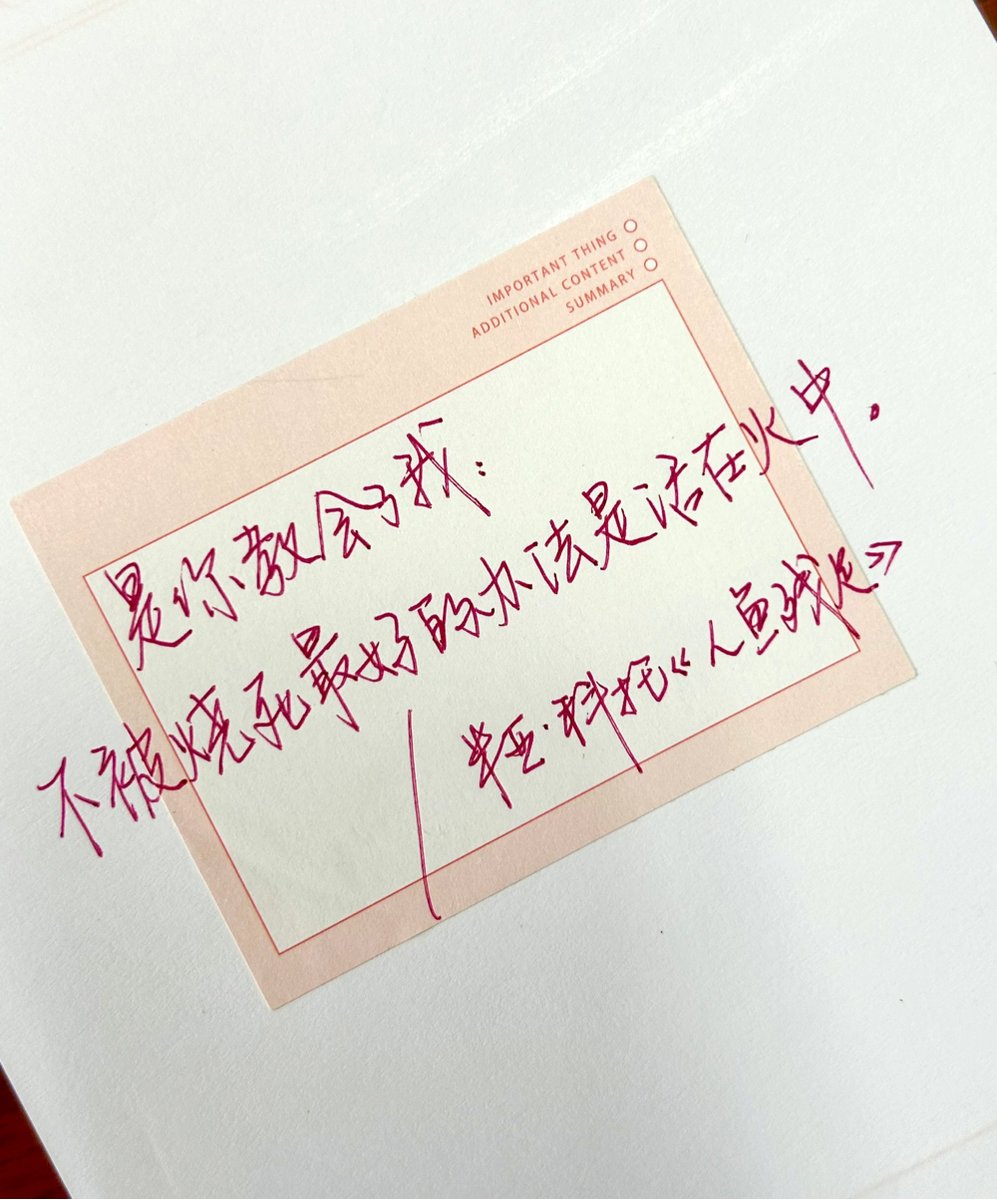 IMPORTANT THING
ADDITIONAL CONTENT
SUMMARY
是你教会了我:
不被烧死最好的办法是活在火中.
娅·科托《人鱼